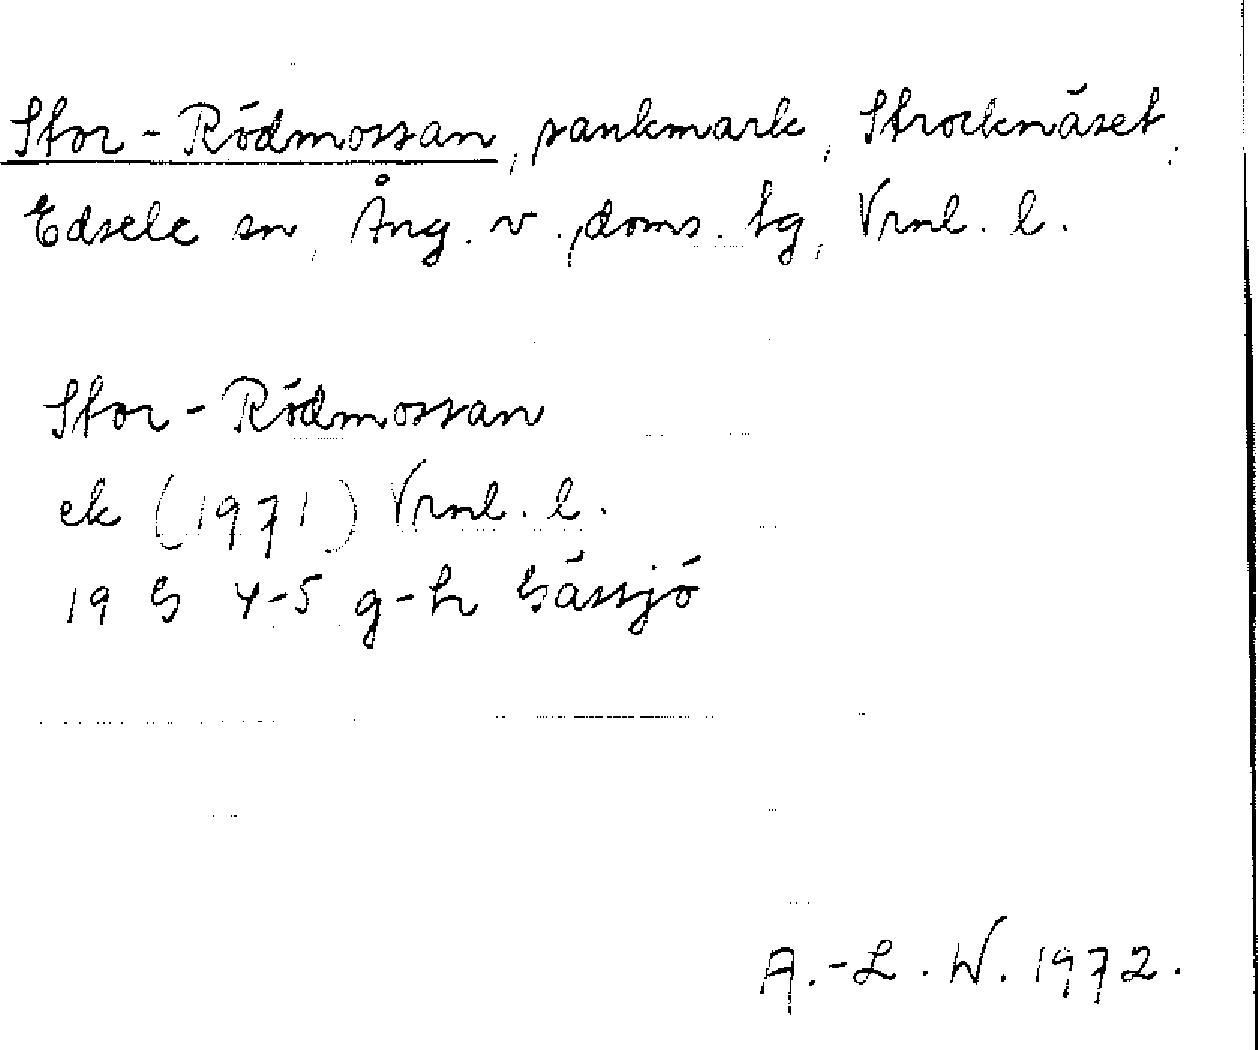 Stor-Rödmossan, sankmark, Strocknäset,
Edsele sn, Ång. v., doms. tg, Vrnl. l.
Stor-Rödmossan
ek (1971) Vrnl. l.
19 G 4-5 g-h Gåssjö
A.-L. W. 1972.